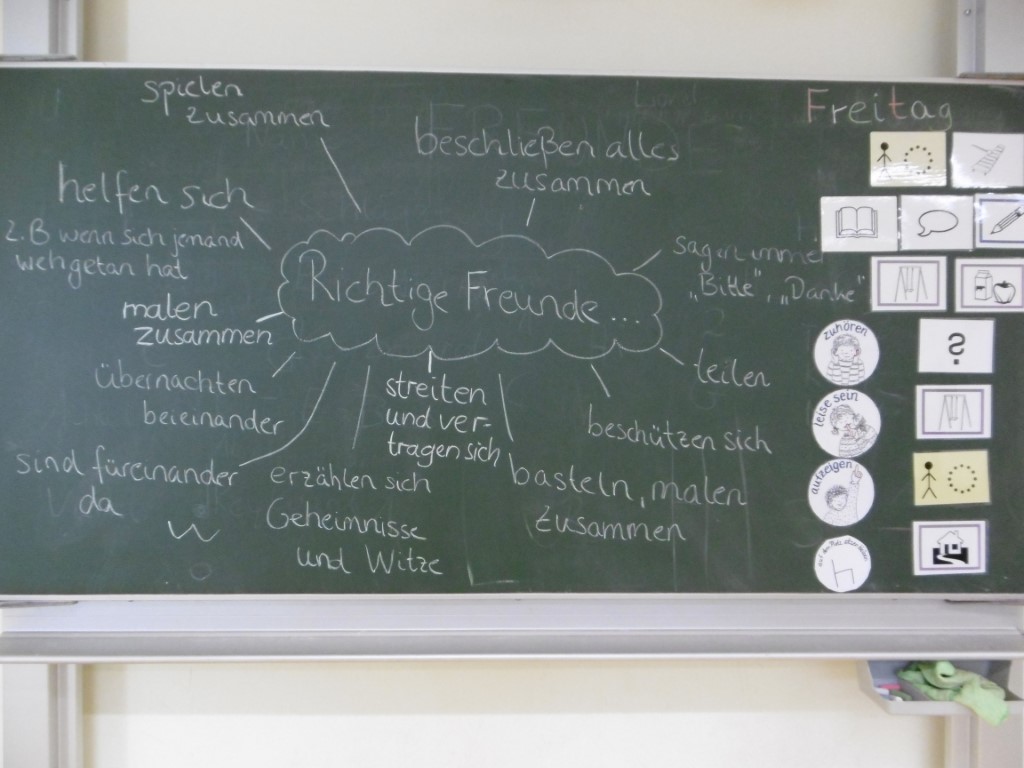 spielen
zusammen
beschließen alles
zusammen
Freitag
helfen sich
z.B wenn sich jemand
wehgetan hat
sagen immer
„Bitte", „Danke"
Richtige Freunde ...
malen
zusammen
übernachten
beieinander
streiten
und ver-
tragen sich
teilen
beschützen sich
sind füreinander
da
erzählen sich
Geheimnisse
und Witze
basteln, malen
zusammen
zuhören
?
leise sein
aufzeigen